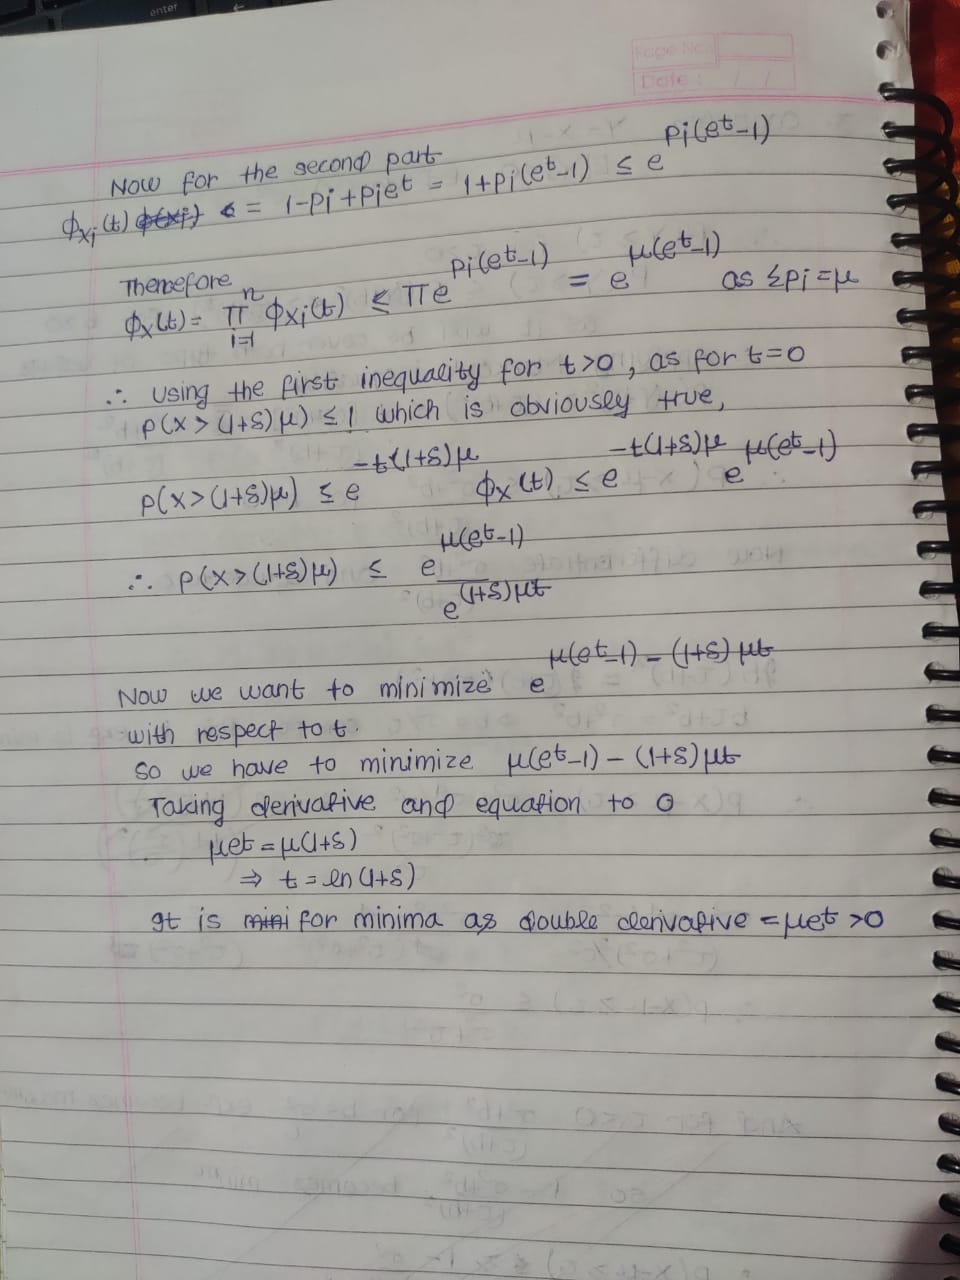 enter
Page No.:
Date: / /
Now for the second part
ϕ_{Xi}(t) = 1-pi+pie^t = 1+pi(e^t-1) ≤ e^{pi(e^t-1)}
Therefore
ϕ_X(t) = ∏_{i=1}^{n} ϕ_{Xi}(t) ≤ πe^{pi(e^t-1)} = e^{μ(e^t-1)} as Σpi=μ
∴ using the first inequality for t>0, as for t=0
P(X>(1+δ)μ) ≤ 1 which is obviously true,
P(X>(1+δ)μ) ≤ e^{-t(1+δ)μ} ϕ_X(t) ≤ e^{-t(1+δ)μ} e^{μ(e^t-1)}
∴ P(X>(1+δ)μ) ≤ e^{μ(e^t-1)} / e^{(1+δ)μt}
Now we want to minimize e^{μ(e^t-1) - (1+δ)μt}
with respect to t.
So we have to minimize μ(e^t-1) - (1+δ)μt
Taking derivative and equation to 0
μe^t = μ(1+δ)
⇒ t = ln(1+δ)
It is for minima as double derivative = μe^t >0